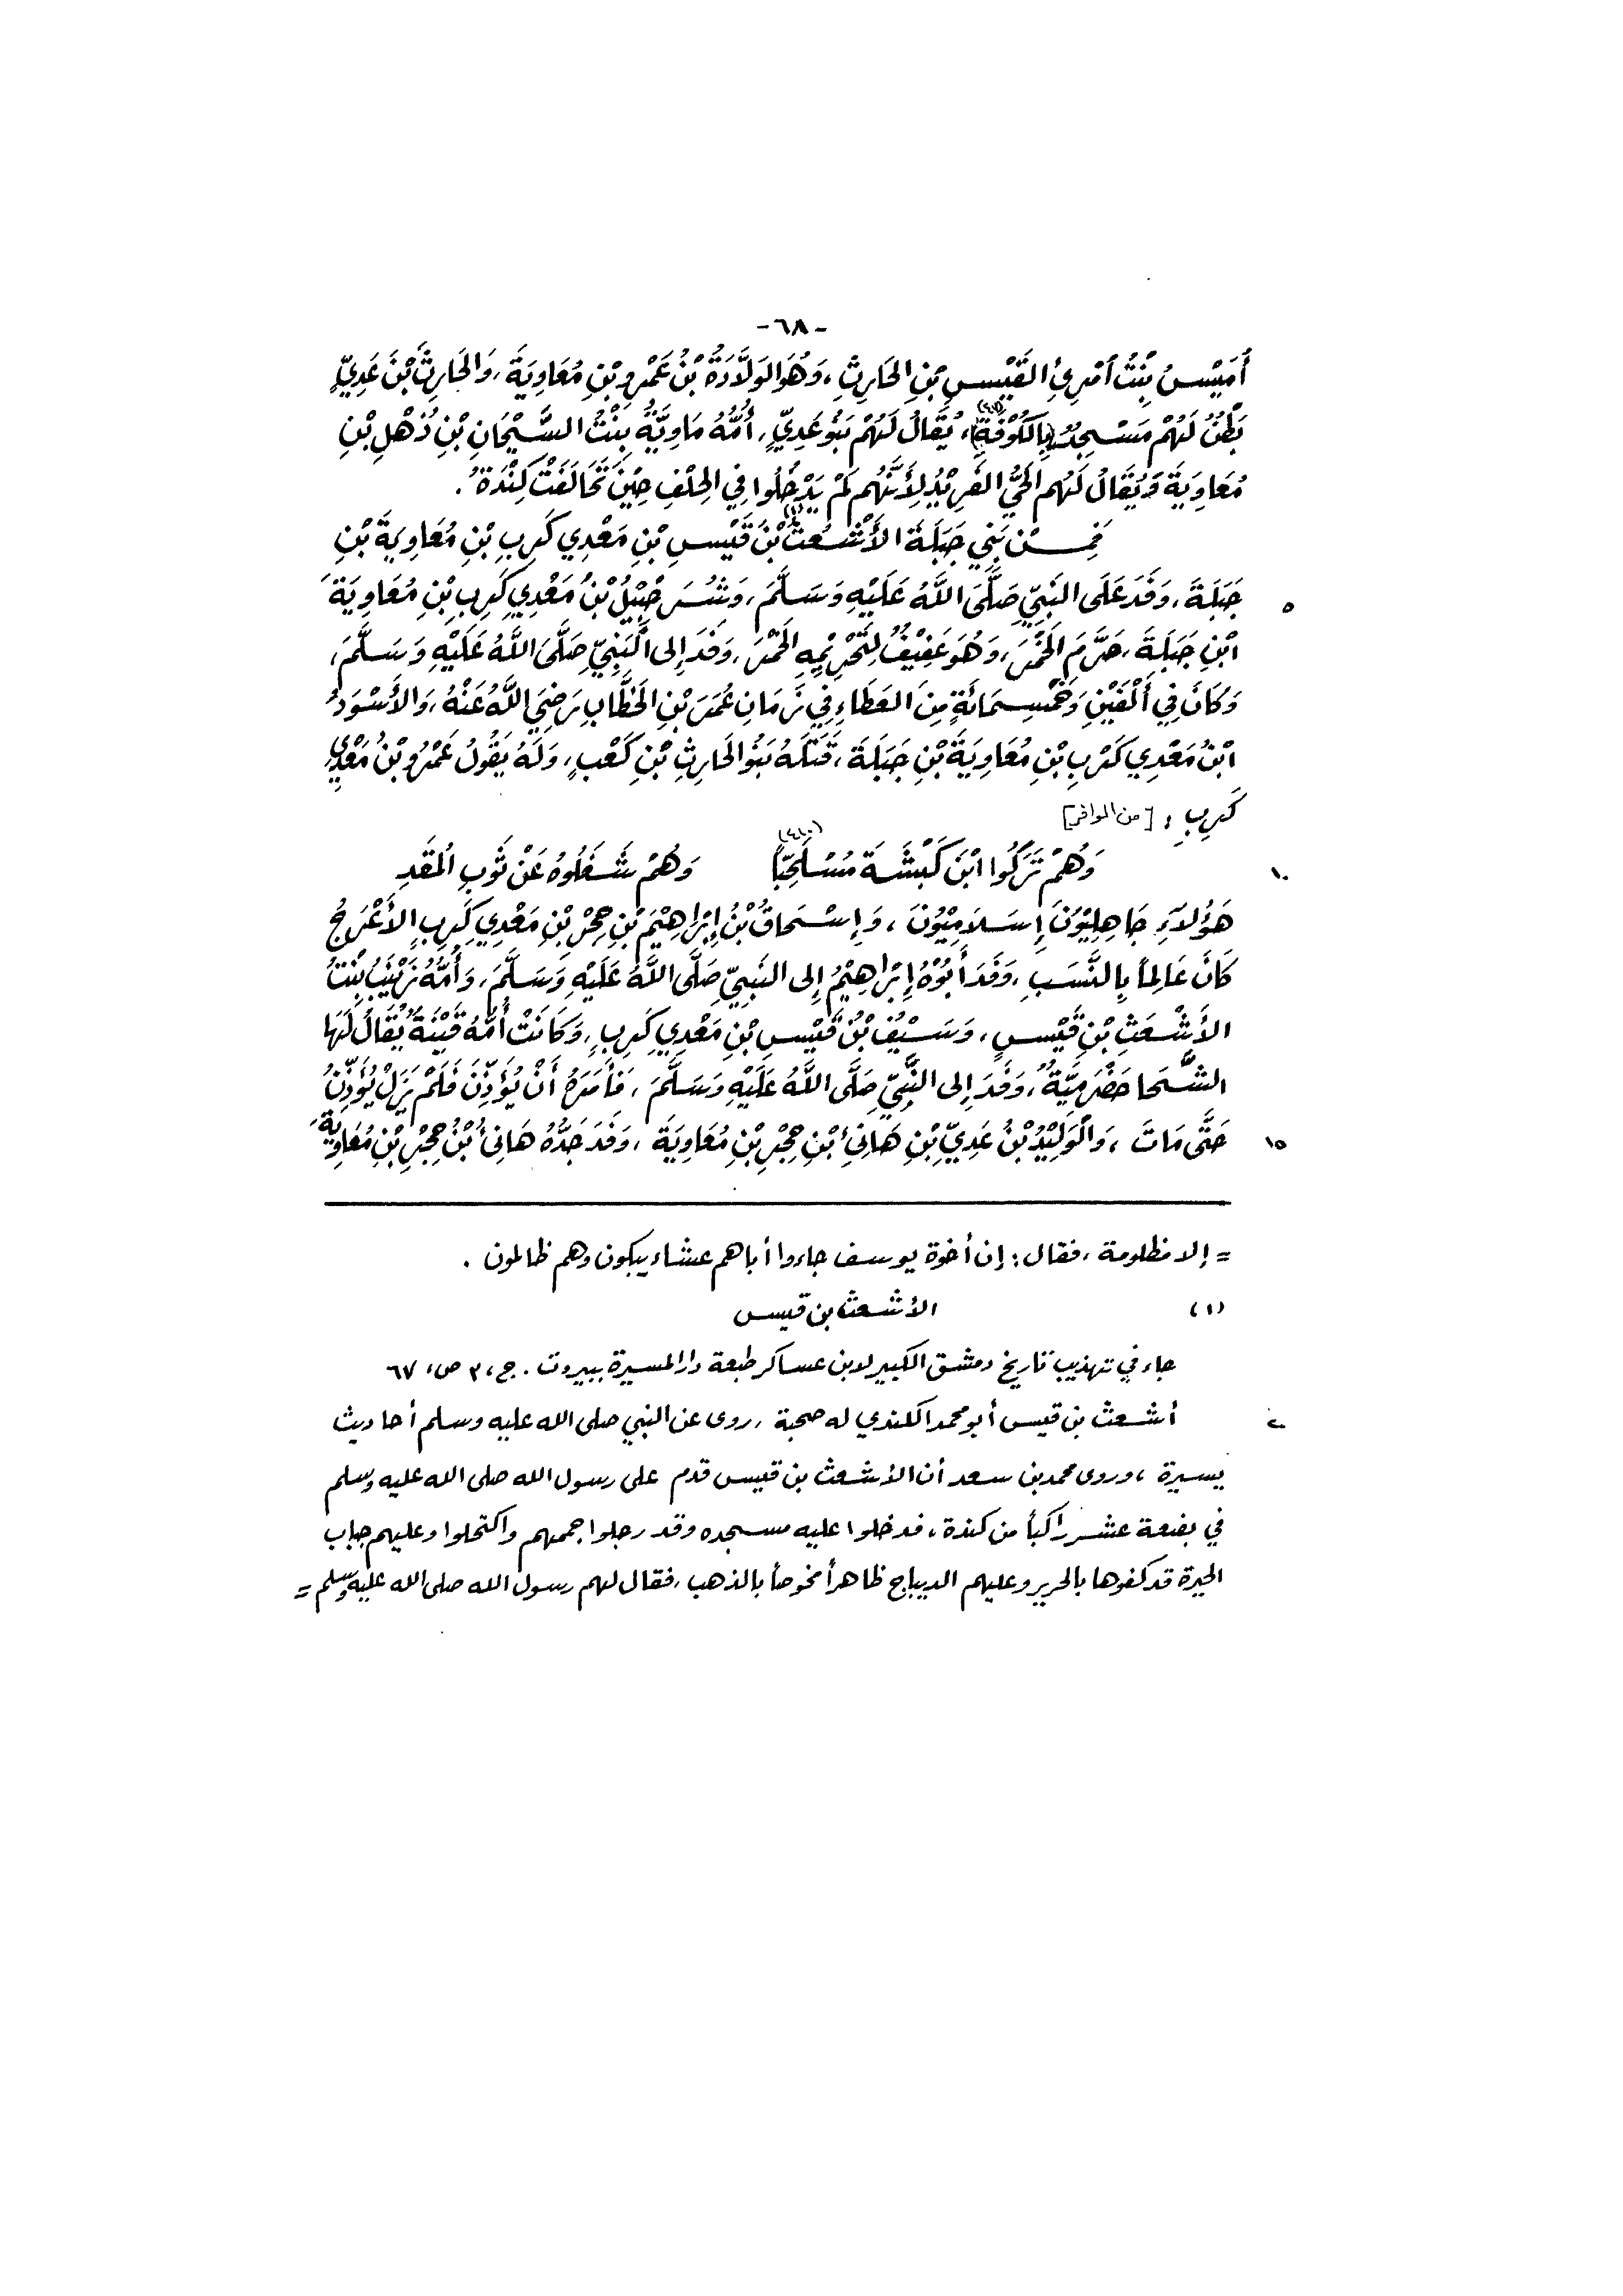 -٦٨-
أُمَيْسُ بِنْتُ آمْرِئِ القَيْسِ بْنِ الحَارِثِ، وَهُوَ الوَلَّادَةُ بْنُ عَمْرِو بْنِ مُعَاوِيَةَ، وَالحَارِثَ بْنَ عَدِيٍّ
بَطْنٌ لَهُمْ مَسْجِدٌ (بِالكُوْفَةِ)، يُقَالُ لَهُمْ بَنُو عَدِيٍّ، أُمُّهُ مَاوِيَّةُ بِنْتُ السَّيْحَانِ بْنِ ذُهْلِ بْنِ
مُعَاوِيَةَ وَيُقَالُ لَهُم الحَيُّ الفَرِيْدُ لِأَنَّهُم لَمْ يَدْخُلُوا فِي الحِلْفِ حِيْنَ تَحَالَفَتْ كِنْدَةُ.
فَمِنْ بَنِي جَبَلَةَ الأَشْعَثُ (١) بْنُ قَيْسِ بْنِ مَعْدِي كَرِبِ بْنِ مُعَاوِيَةَ بْنِ
٥ جَبَلَةَ، وَفَدَ عَلَى النَبِيِّ صَلَّى اللَّهُ عَلَيْهِ وَسَلَّمَ، وَشُرَحْبِيْلُ بْنُ مَعْدِي كَرِبِ بْنِ مُعَاوِيَةَ
ابْنِ جَبَلَةَ، حَرَّمَ الخَمْرَ، وَهُوَ عَفِيْفٌ لِتَحْرِيْمِهِ الخَمْرَ، وَفَدَ إِلى النَبِيِّ صَلَّى اللَّهُ عَلَيْهِ وَسَلَّمَ،
وَكَانَ فِي أَلْفَيْنِ وَخَمْسِمَائَةٍ مِنَ العَطَاءِ فِي زَمَانِ عُمَرَ بْنِ الخَطَّابِ رَضِيَ اللَّهُ عَنْهُ، وَالأَسْوَدُ
ابْنُ مَعْدِي كَرِبِ بْنِ مُعَاوِيَةَ بْنِ جَبَلَةَ، قَتَلَهُ بَنُو الحَارِثِ بْنِ كَعْبٍ، وَلَهُ يَقُولُ عَمْرُو بْنُ مَعْدِي
كَرِبٍ: [من الوافر]
١٠ وَهُمْ تَرَكُوا ابْنَ كَبْشَةَ مُسْلَحِبّاً وَهُمْ شَغَلُوهُ عَنْ شُرْبِ المَقَدِ
هَؤُلاَءِ جَاهِلِيُّوْنَ إِسْلاَمِيُّوْنَ، وَإِسْحَاقُ بْنُ إِبْرَاهِيْمَ بْنِ حُجْرِ بْنِ مَعْدِي كَرِبٍ الأَعْرَجُ
كَانَ عَالِماً بِالنَّسَبِ، وَفَدَ أَبُوْهُ إِبْرَاهِيْمُ إِلى النَبِيِّ صَلَّى اللَّهُ عَلَيْهِ وَسَلَّمَ، وَأُمُّهُ زَيْنَبُ بِنْتُ
الأَشْعَثِ بْنِ قَيْسٍ، وَسَيْفُ بْنُ قَيْسِ بْنِ مَعْدِي كَرِبٍ، وَكَانَتْ أُمُّهُ قَيْنَةً يُقَالُ لَهَا
الشَّحَا حَضْرَمِيَّةٌ، وَفَدَ إِلى النَّبِيِّ صَلَّى اللَّهُ عَلَيْهِ وَسَلَّمَ، فَأَمَرَهُ أَنْ يُؤَذِّنَ فَلَمْ يَزَلْ يُؤَذِّنُ
١٥ حَتَّى مَاتَ، وَالْوَلِيْدُ بْنُ عَدِيِّ بْنِ هَانِئِ بْنِ حُجْرِ بْنِ مُعَاوِيَةَ، وَفَدَ جَدُّهُ هَانِئُ بْنُ حُجْرِ بْنِ مُعَاوِيَةَ
= إلا مظلومة، فقال: إن أخوة يوسف جاءوا أباهم عشاء يبكون وهم ظالمون.
(١) الأشعث بن قيس
جاء في تهذيب تاريخ دمشق الكبير لابن عساكر طبعة دار المسيرة ببيروت. ج، ٣ ص، ٦٧
٢٠ أشعث بن قيس أبو محمد الكندي له صحبة، روى عن النبي صلى الله عليه وسلم أحاديث
يسيرة، وروى محمد بن سعد أن الأشعث بن قيس قدم على رسول الله صلى الله عليه وسلم
في بضعة عشر راكباً من كندة، فدخلوا عليه مسجده وقد رجلوا جممهم واكتحلوا وعليهم جباب
الحيرة قد كفوها بالحرير وعليهم الديباج ظاهراً مخوصاً بالذهب، فقال لهم رسول الله صلى الله عليه وسلم =